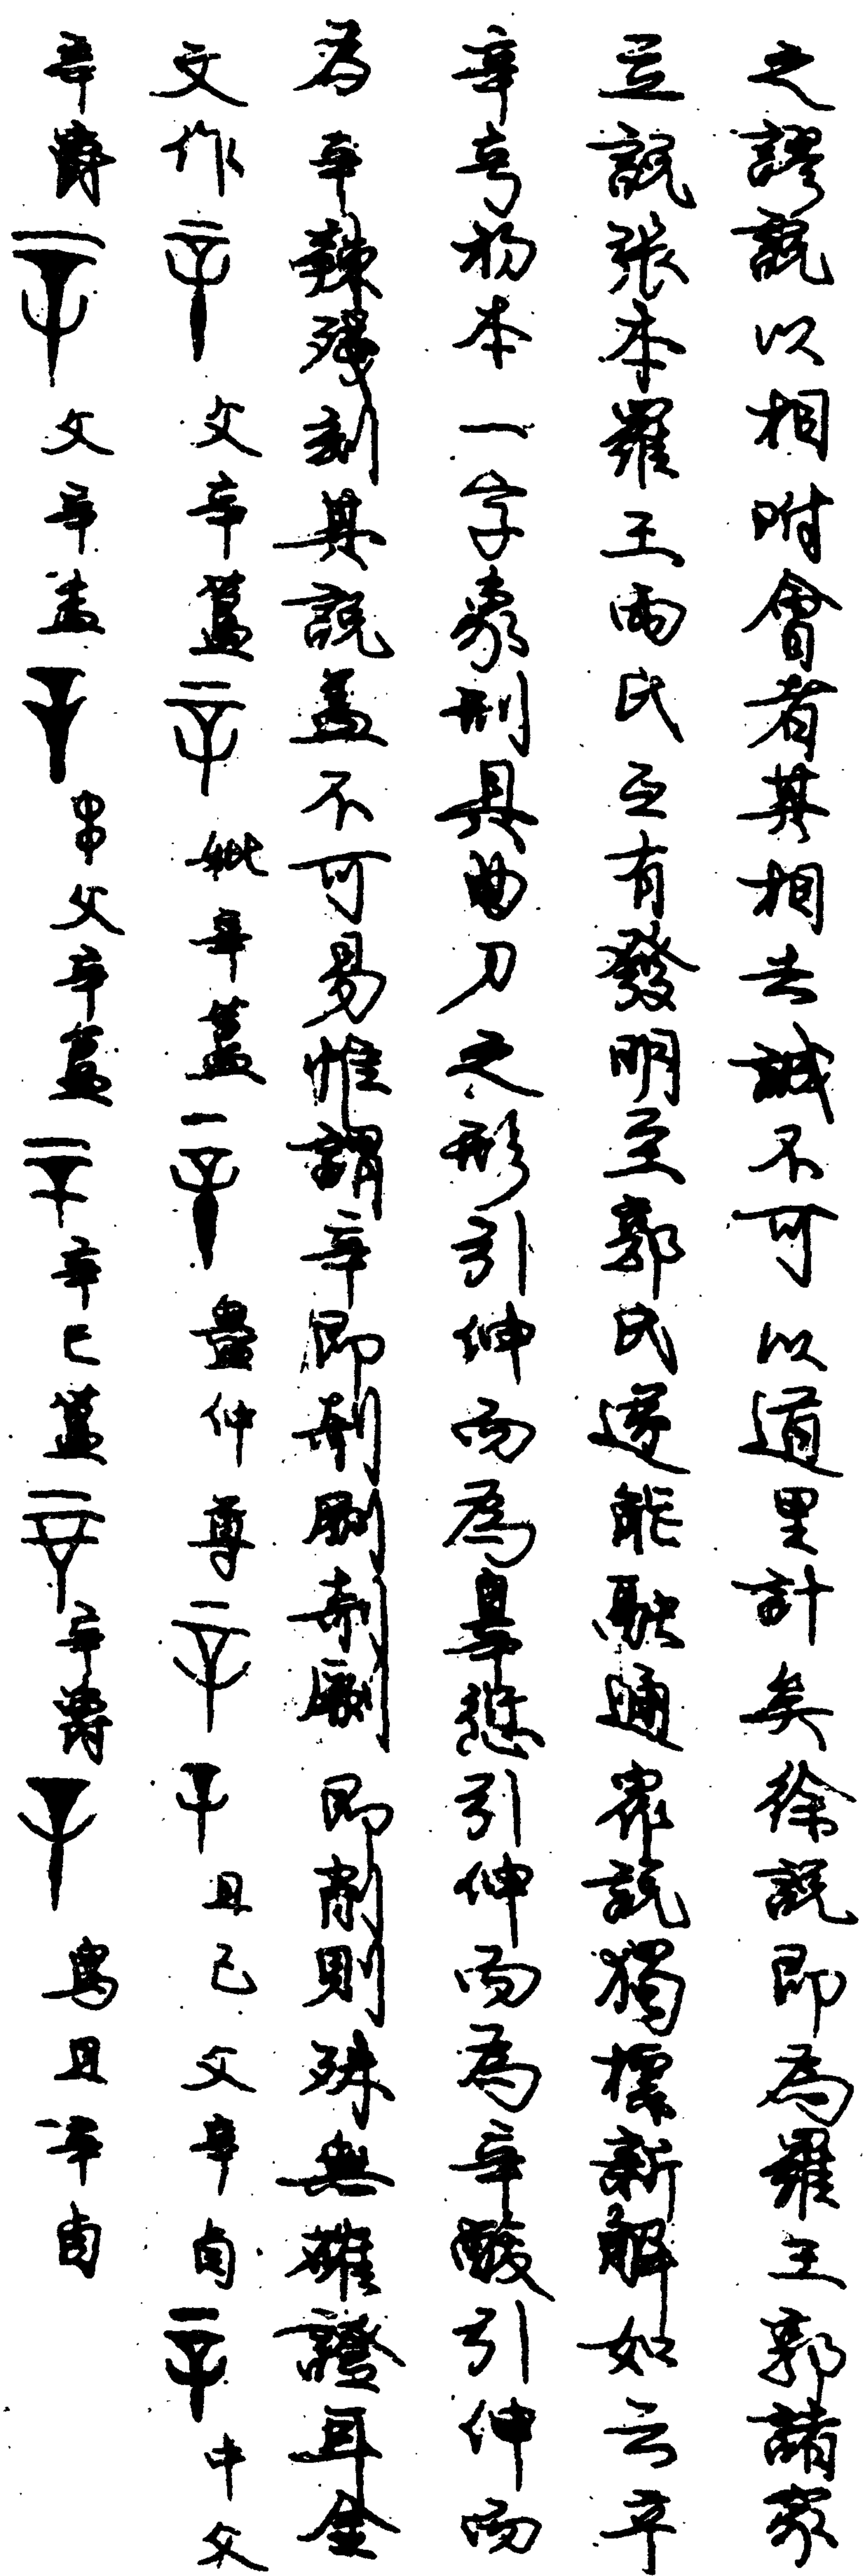 之謬說以相附會者其相去誠不可以道里計矣徐說即為羅王郭諸家
立說張本羅王兩氏互有發明至郭氏遂能融通眾說獨標新解如云辛
辛䇂初本一字象刑具曲刀之形引伸而為辠愆引伸而為辛酸引伸而
為辛辣殘刻其說蓋不可易惟謂辛即剞劂剞劂即削則殊無確證耳金
文作 父辛簋 妣辛簋 仲尊 且己父辛卣 中父
辛爵 父辛盉 串父辛簋 辛巳簋 辛爵 且辛卣